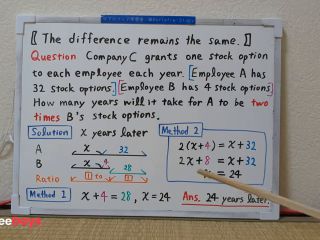 〚 The difference remains the same. 〛
Question Company C grants one stock option
to each employee each year. [Employee A has
32 stock options.] [Employee B has 4 stock options]
How many years will it take for A to be two
times B's stock options.
Solution x years later
A x 32
B x 4 28
Ratio 1 to 1
Method 1 x+4 = 28, x=24
Method 2
2(x+4) = x+32
2x+8 = x+32
= 24
Ans. 24 years later.